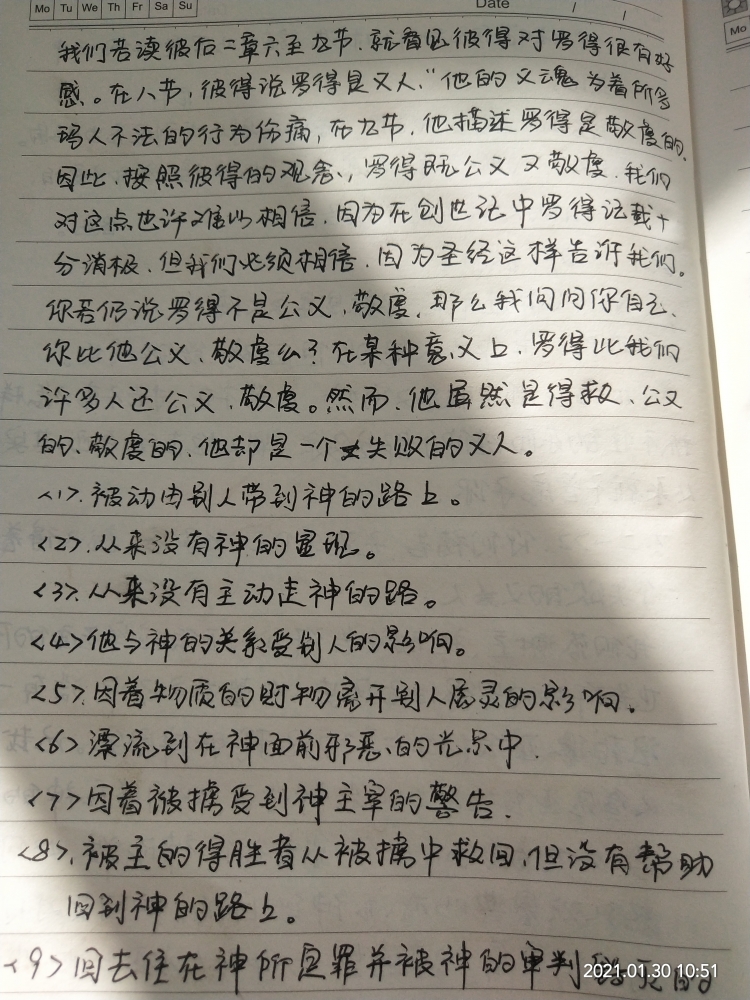 Mo Tu We Th Fr Sa Su
Date / /
Mo
我们若读彼后二章六至九节,就看见彼得对罗得很有好
感。在八节,彼得说罗得是义人,“他的义魂为着所多
玛人不法的行为伤痛,在九节,他描述罗得是敬虔的,
因此,按照彼得的观念,罗得既公义又敬虔,我们
对这点也许难以相信,因为在创世记中罗得记载十
分消极,但我们必须相信,因为圣经这样告诉我们。
你若仍说罗得不是公义、敬虔,那么我问问你自己,
你比他公义、敬虔么?在某种意义上,罗得比我们
许多人还公义、敬虔。然而,他虽然是得救、公义
的、敬虔的,他却是一个失败的义人。
<1>.被动由别人带到神的路上。
<2>.从来没有神的显现。
<3>.从来没有主动走神的路。
<4>他与神的关系受别人的影响。
<5>.因着物质的财物离开别人属灵的影响.
<6>漂流到在神面前邪恶的光景中.
<7>因着被掳受到神主宰的警告.
<8>.被主的得胜者从被掳中救回,但没有帮助
回到神的路上。
<9>回去住在神所定罪并被神的审判 的
2021.01.30 10:51